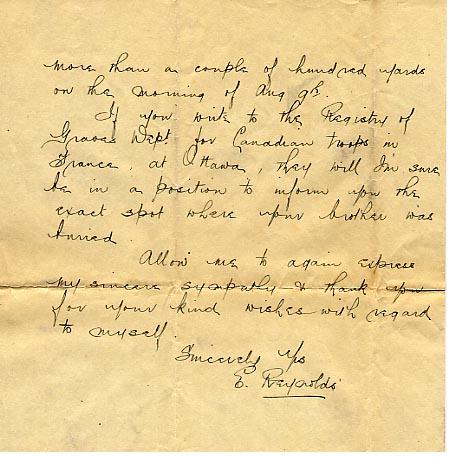 more than a couple of hundred yards
on the morning of Aug 9th.
If you write to the Registry of
Graves Dept. for Canadian troops in
France, at Ottawa, they will I'm sure
be in a position to inform you the
exact spot where your brother was
buried.
Allow me to again express
my sincere sympathy & thank you
for your kind wishes with regard
to myself.
Sincerely Yrs
E. Reynolds